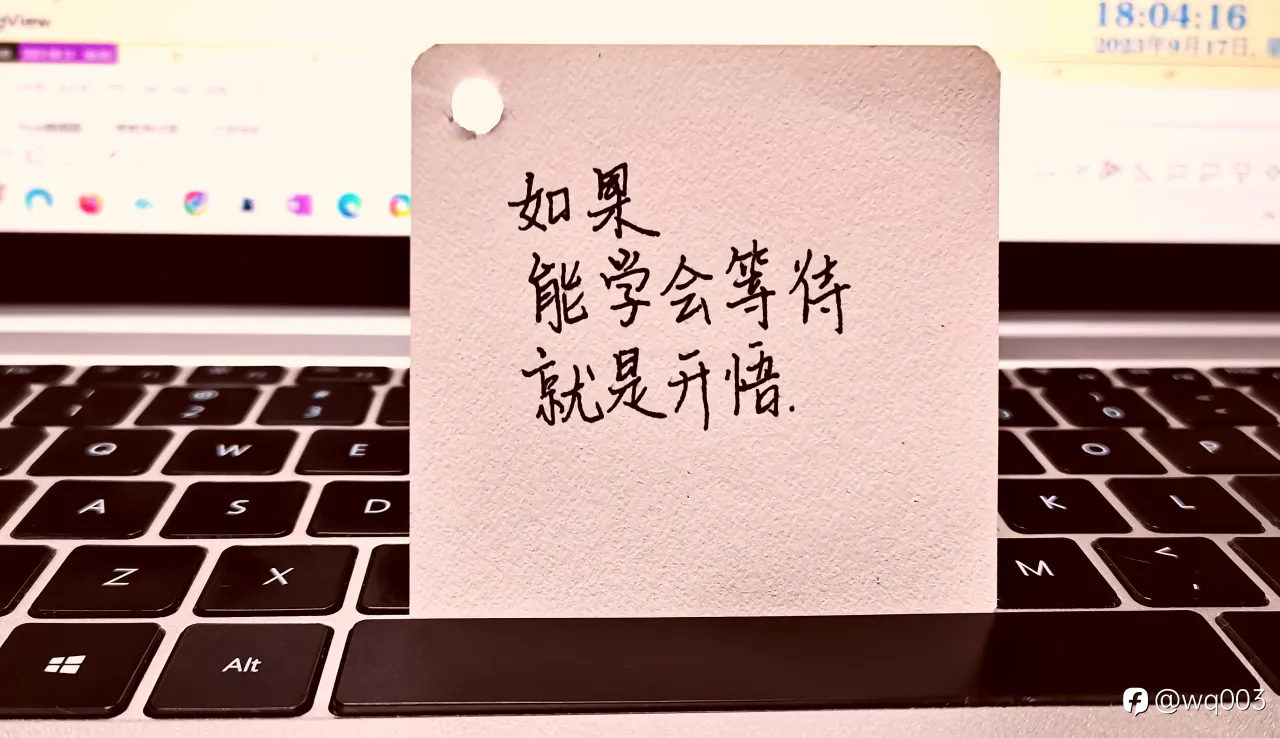 gView
18:04:16
2023年9月17日,
如果
能学会等待
就是开悟.
1
2
3
Q
W
E
O
P
A
S
D
K
L
Z
X
M
<
,
Alt
@wq003